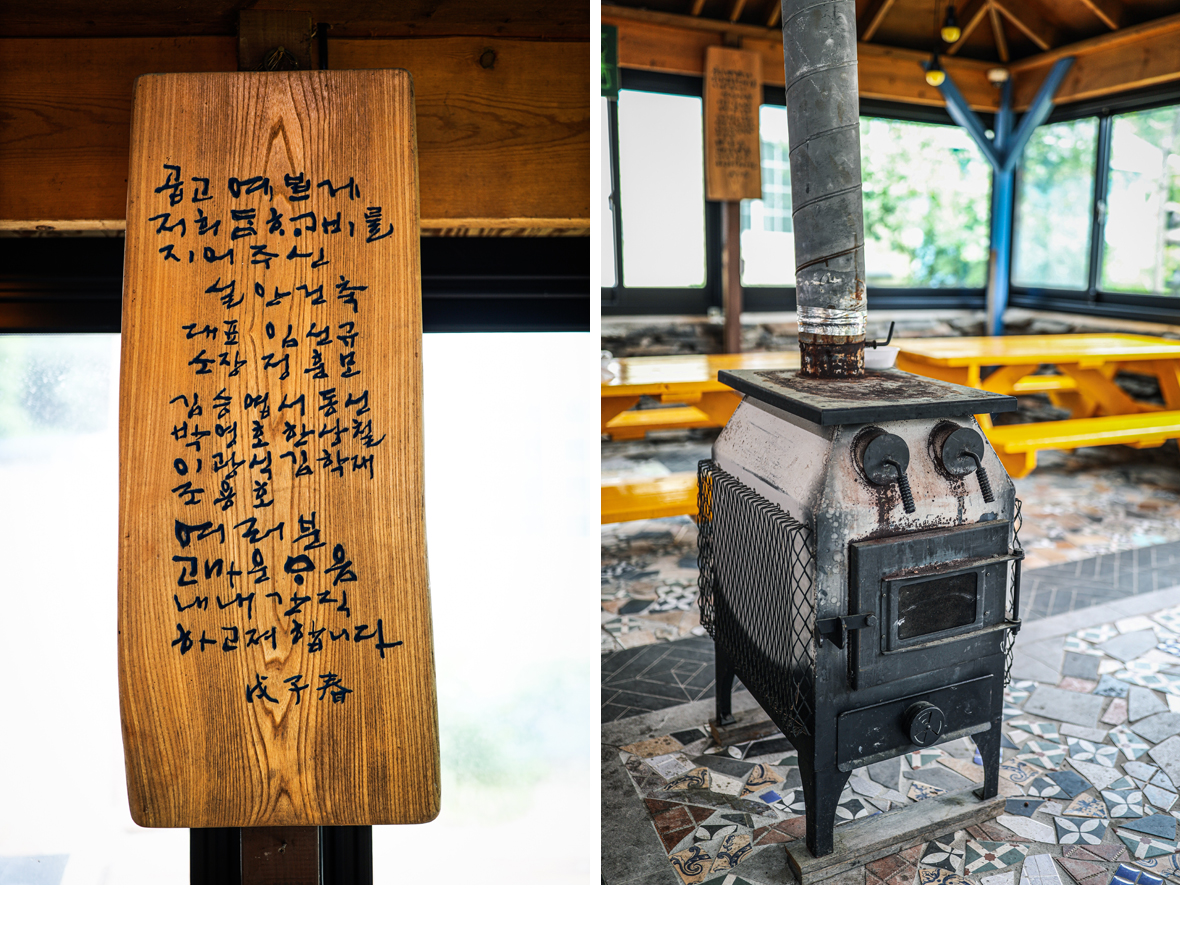 곱고 예쁘게
저희 토향고비를
지어주신
설안건축
대표 임선규
소장 정흥모
김승엽 서동선
박영호 한상철
이광석 김학재
조용호
여러분
고마운 마음
내내 간직
하고저 합니다
戊子春